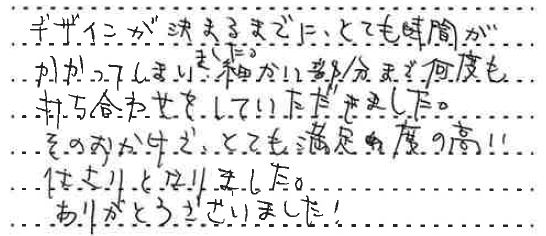 デザインが決まるまでに、とても時間が
かかってしまいました。細かい部分まで何度も
打ち合わせをしていただきました。
そのおかげで、とても満足度の高い
仕上りとなりました。
ありがとうございました!